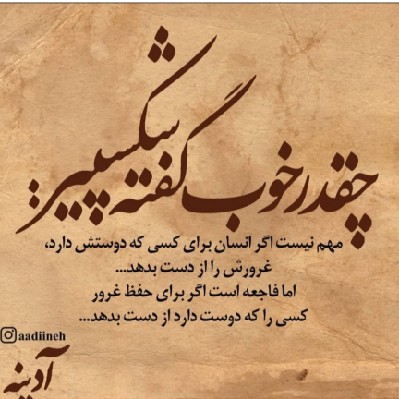 چقدر خوب گفته شکسپیر:
مهم نیست اگر انسان برای کسی که دوستش دارد،
غرورش را از دست بدهد...
اما فاجعه است اگر برای حفظ غرور
کسی را که دوست دارد از دست بدهد...
aadiineh
آدینه